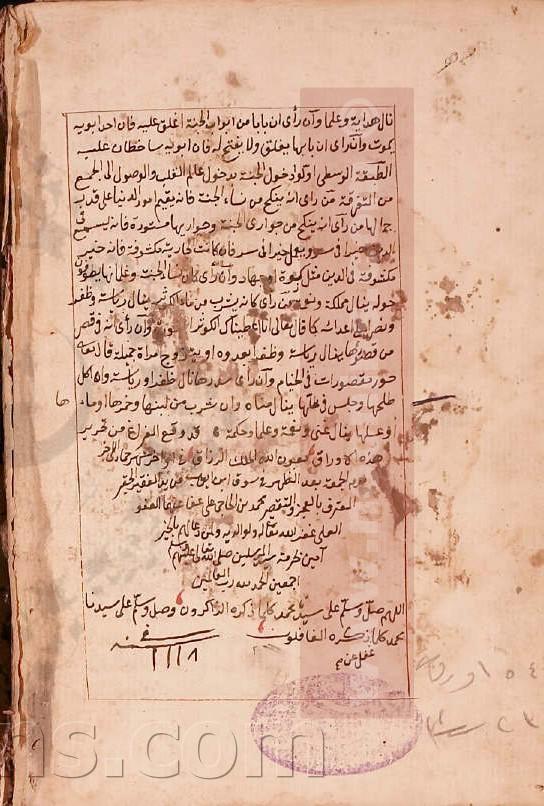 نال هداية وعلما وآن رأى ان بابا من ابواب الجنة اغلق عليه فان احد ابويه
يموت وان رأى ان بابها يغلق ولا يفتح له فان ابويه ساخطان عليه
الطبقة الوسطى او كو دخول الجنة يدخول عالم الغلب والوصول الى الجمع
من التفرقة من رأى انه ينكح من نساء الجنة فانه يقيم امور الدنيا على قدر
جمالها من رأى انه ينكح من جوارى الجنة وحواريها مستورة فانه يسمع فى
خيرا فى سر ويعمل خيرا فى سر فان كانت الجارية مكشوفة فانه خير
مكشوفة فى الدين مثل او جهاد وآن رأى كان نساء الجنة وغلمانها يطوفون
حوله ينال مملكة ونعمة من رأى كانه يشرب من ماء الكوثر ينال رياسة وظفر
ونصر على اعدائه كما قال تعالى انا اعطيناك الكوثر وآن رأى انه فى قصر
من قصورها ينال رياسة وظفرا بعدوه او يتزوج مرأة جميلة قال تعالى
حور مقصورات فى الخيام وآن رأى سدرها نال ظفرا ورياسة وان اكل
طلحها وجلس فى ظلها ينال مناه وان شرب من لبنها وخمرها وماء
ها
وعسلها ينال غنى ونعمة وعلما وحكمة قد وقع الفراغ من تحرير
هذه الاوراق بعون الله الملك الرزاق فى اواخر شهر جمادى الاخر
يوم الجمعة بعد الظهر فى سوق من يد الفقير الحقير
المعترف بالعجز والتقصير محمد بن الحاجى على عفا عنهما العفو
العلى غفر الله تعالى له ولوالديه ولمن دعا لهم بالخير
آمين بحرمة سيد المرسلين صلى الله تعالى عليه وعليهم
اجمعين الحمد لله رب العالمين
اللهم صل وسلم على سيدنا محمد كلما ذكره الذاكرون وصل وسلم على سيدنا
محمد كلما ذكره الغافلون
سنة
١١١٨
٥٤ اوراق
٢٣
ns.com